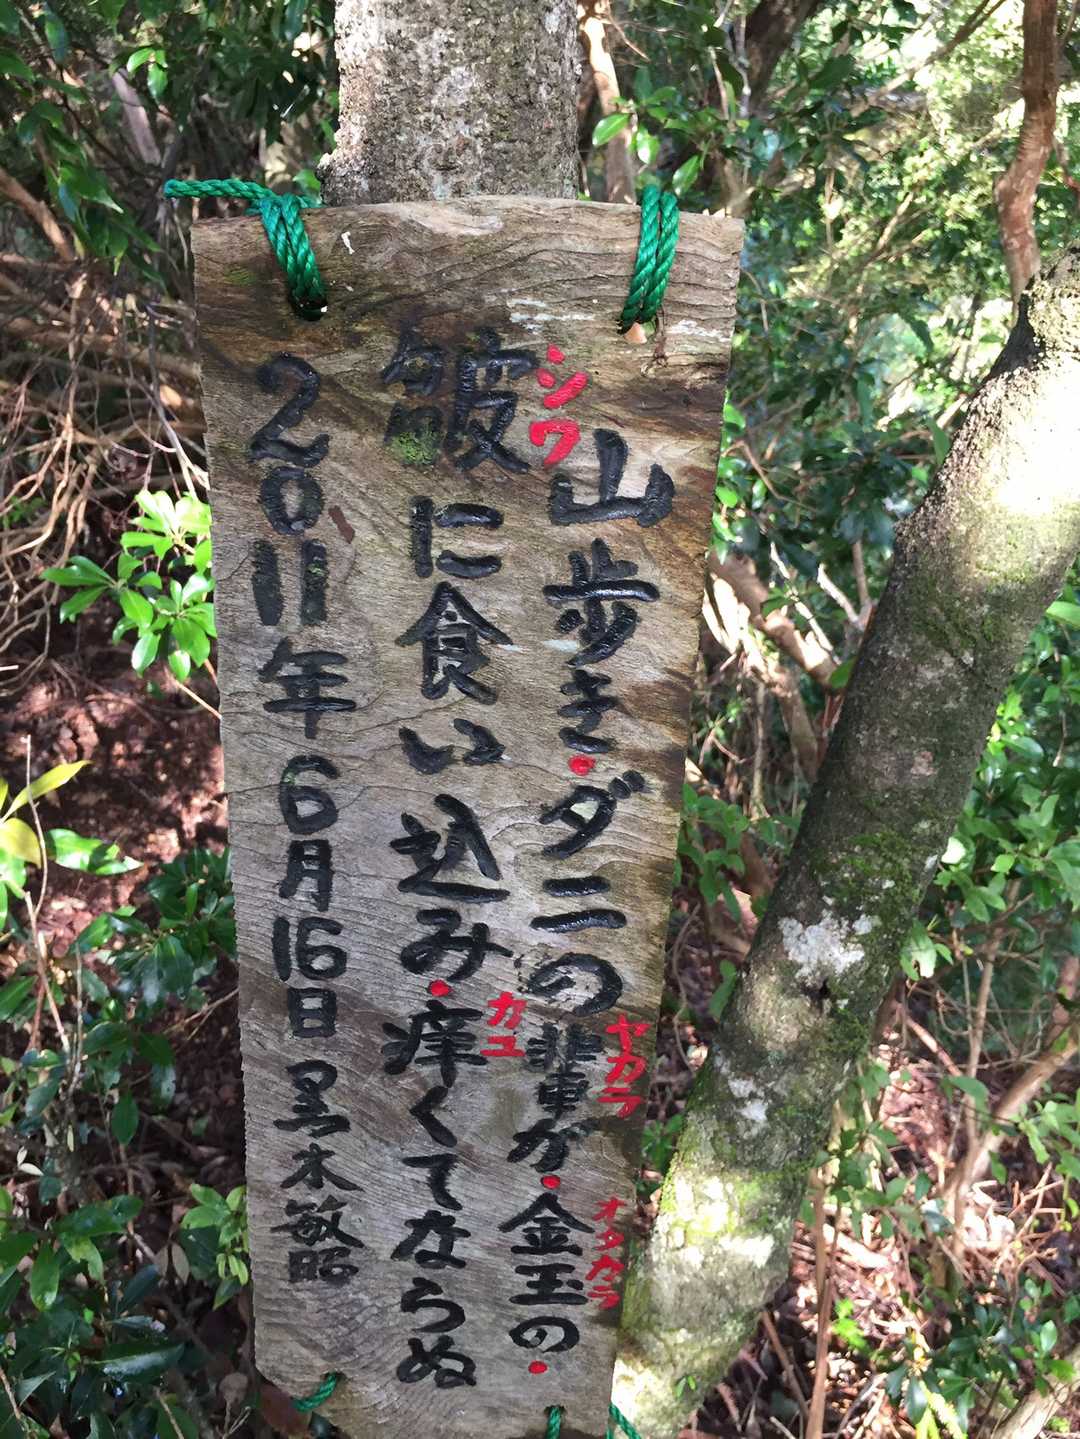 ヤカラ
オタカラ
山歩き・ダニの輩が・金玉の・
シワ
カユ
皺に食い込み・痒くてならぬ
2011年6月16日 黒木敏昭